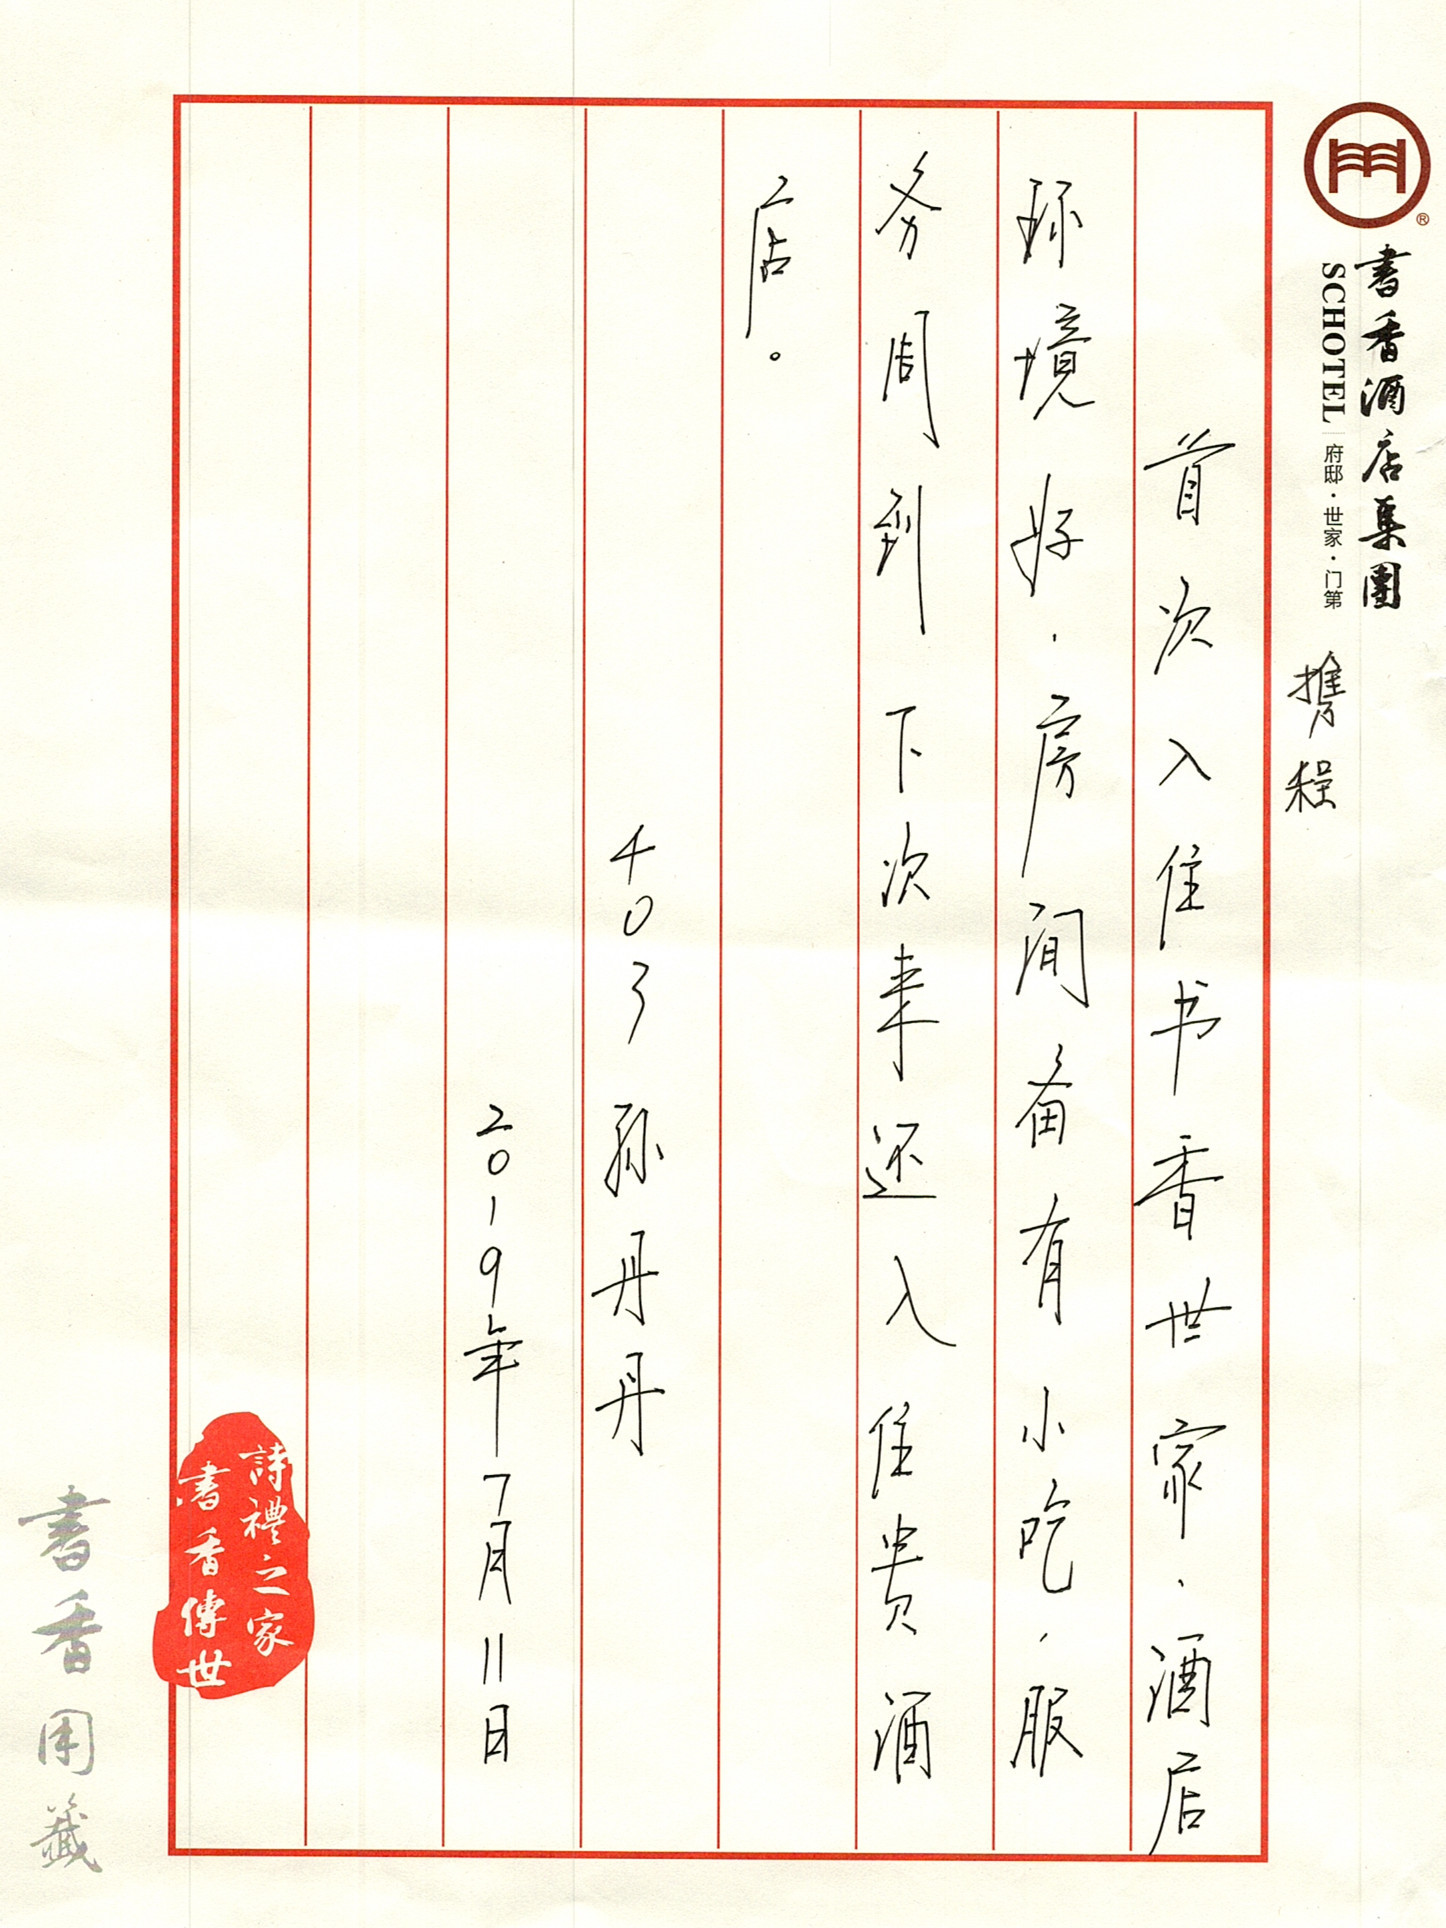 書香酒店集團
SCHOTEL
府邸·世家·门第
携程
首次入住书香世家.酒店
环境好.房间备有小吃.服
务周到下次来还入住贵酒
店。
403孙丹丹
2019年7月11日
詩禮之家
書香傳世
書香用籤